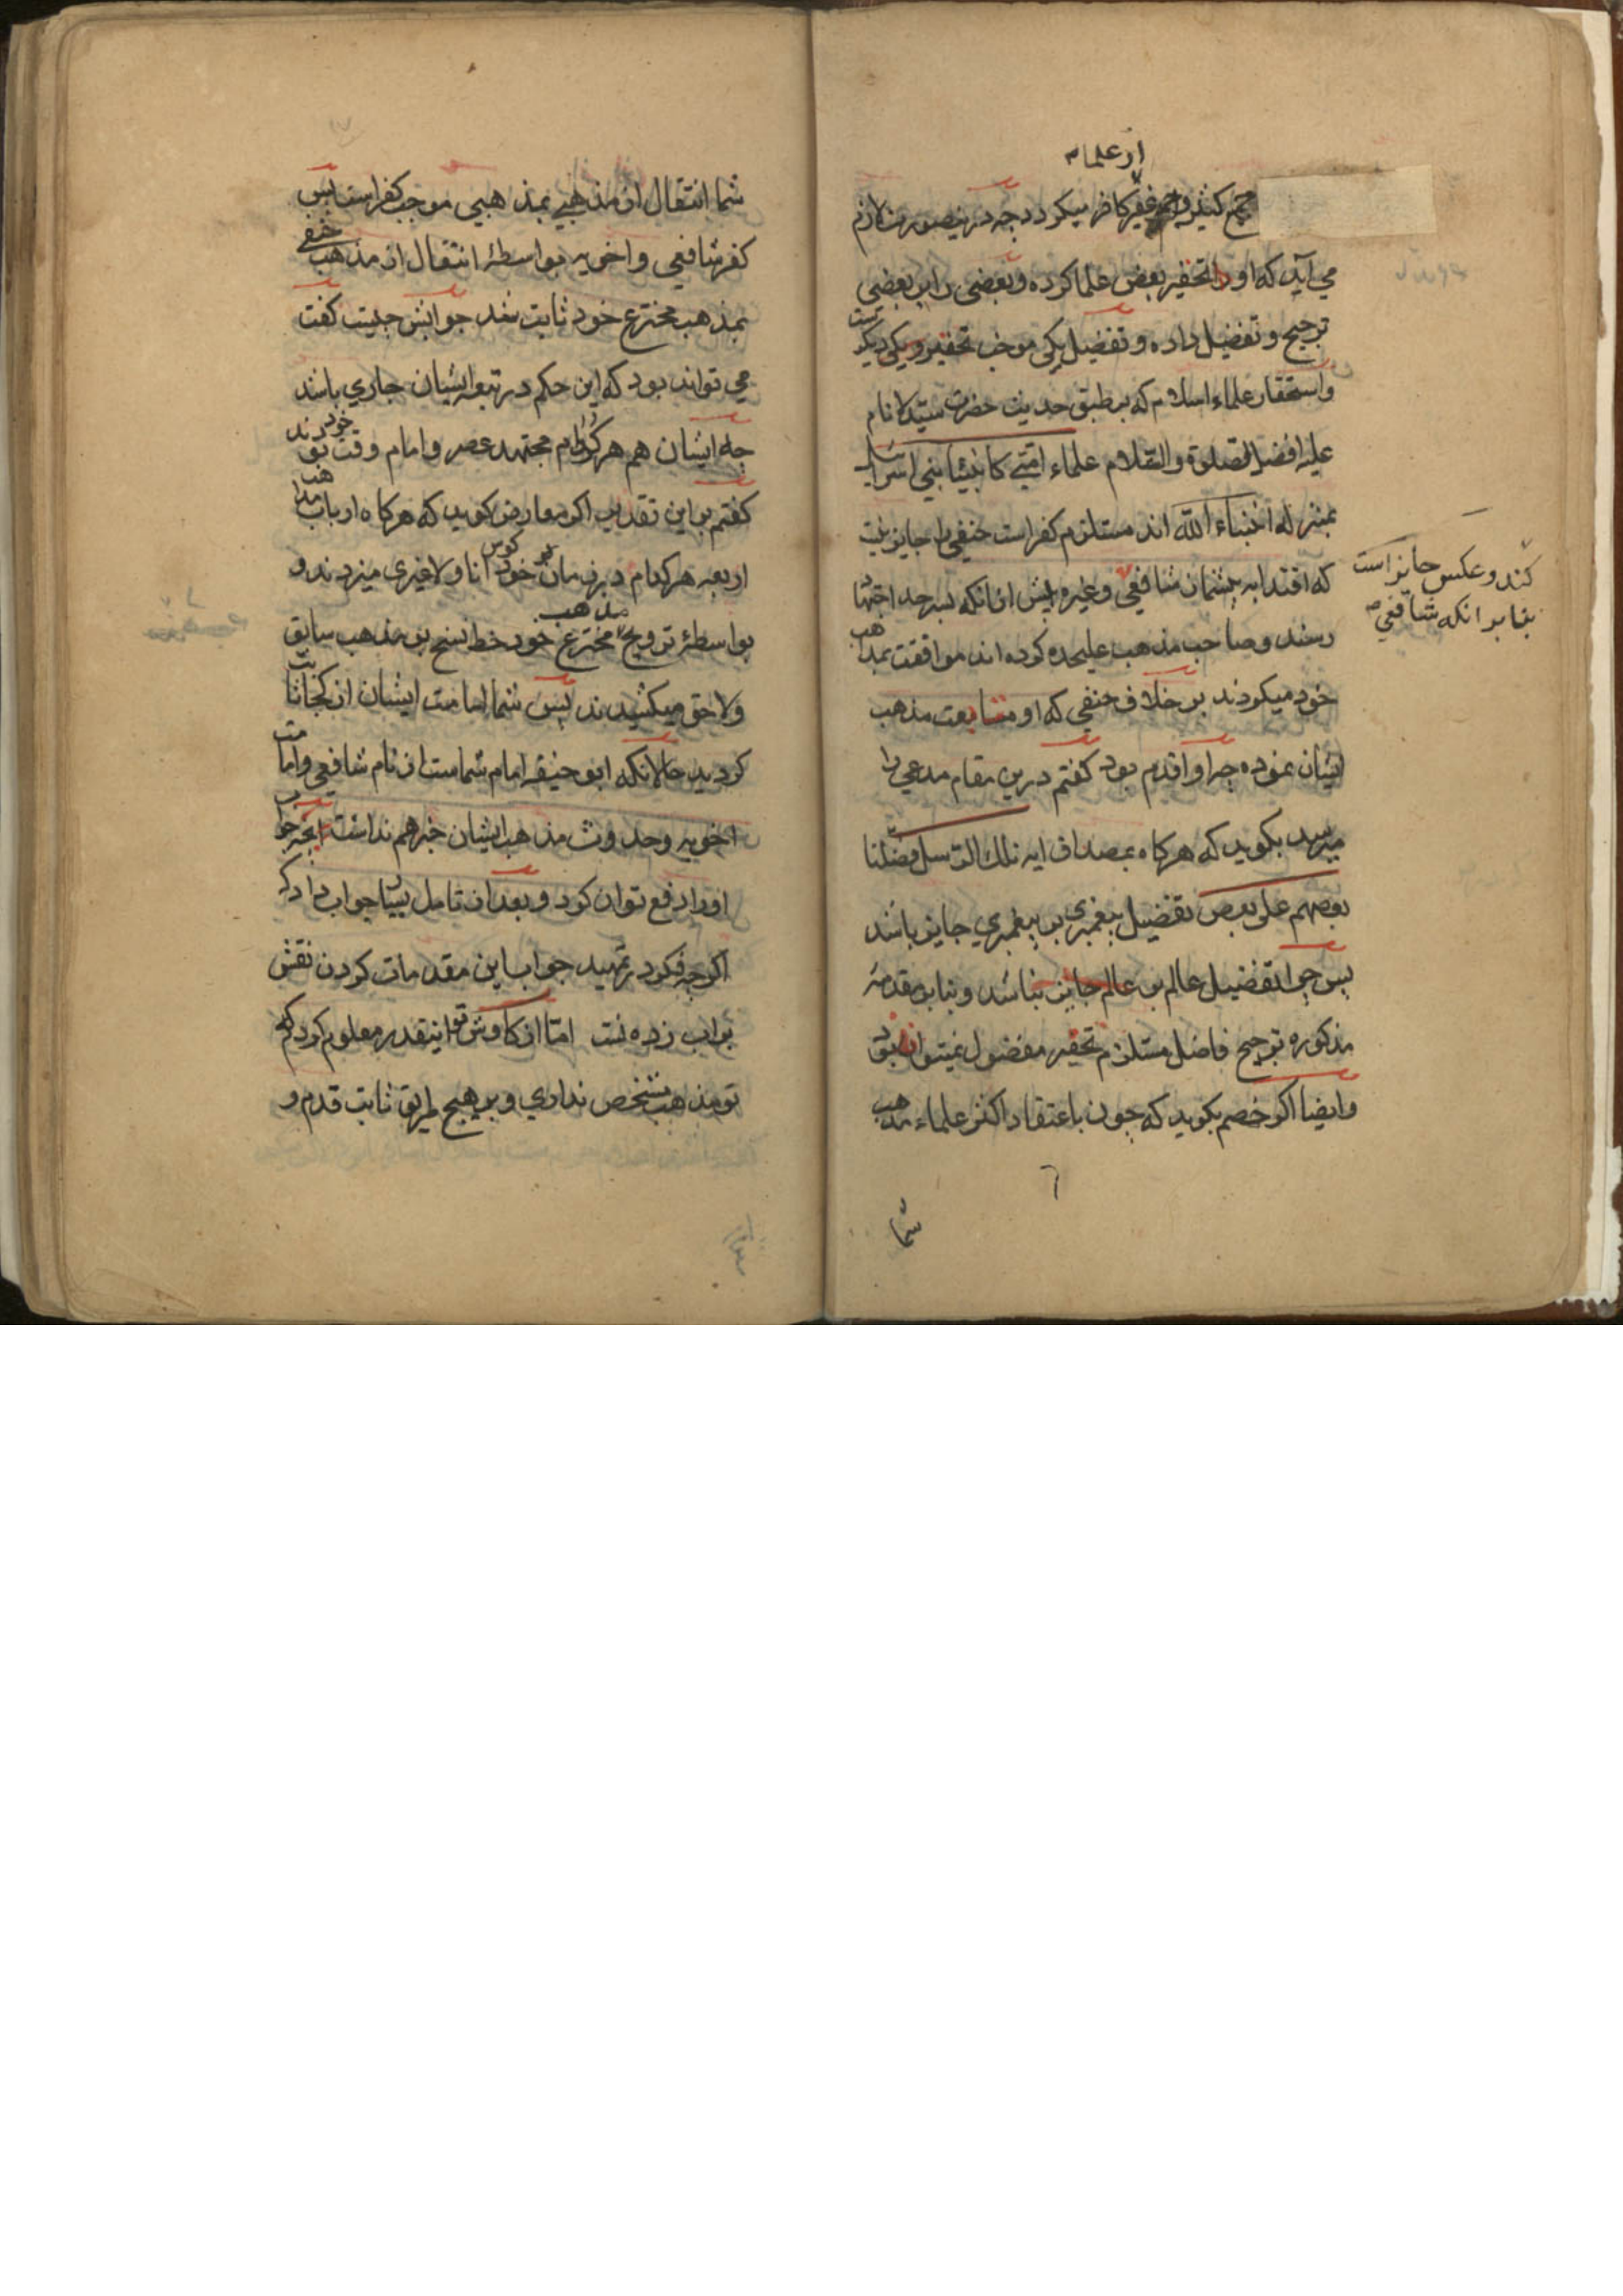 از علماء
جمع کثیر و جم غفیر کافر میکردد چه درینصورت لازم
می آید که او را تحقیر بعض علما کرده و بعضی را بر بعضی
ترجیح و تفضیل داده و تفضیل یکی موجب تحقیر دیکریست
و استحقار علماء اسلام که بر طبق حدیث حضرت سید الانام
علیه افضل الصلوة و السلام علماء امتی کانبیاء بنی اسرائیل
بمنزله انبیاء الله اند مستلزم کفر است حنفی را جایز نیست
که اقتدا به شافعی و غیره پیش از آنکه بسرحد اجتهاد
رسند و صاحب مذهب علیحده کردند موافقت بمذهب
خود میکردند بر خلاف حنفی که او متابعت مذهب
ایشان ننموده چه او اقدم بود کفتم درین مقام مدعی را
میرسد بکوید که هر کاه بمصداق ایه تلک الرسل فضلنا
بعضهم علی بعض تفضیل پیغمبری بر پیغمبری جایز باشد
پس چرا تفضیل عالم بر عالم جایز نباشد و بنابر مقدمه
مذکوره ترجیح فاضل مستلزم تحقیر مفضول نمیتواند بود
و ایضا اکر خصم بکوید که چون باعتقاد اکثر علماء مذهب
شما
کند و عکس جایز است
بنابر انکه شافعی
شما انتقال از مذهبی بمذهبی موجب کفر است پس
کفر شافعی و اخویه بواسطهٔ انتقال از مذهب حنفی
بمذهب مخترع خود ثابت شد جوابش چیست کفت
می تواند بود که این حکم در تبعهٔ ایشان جاری باشد
چه ایشان هم هر کدام مجتهد عصر و امام وقت خود بودند
کفتم بر این تقدیر اکر معارض کوید که هر کاه ارباب مذاهب
اربعه هر کدام در زمان خود کوس انا و لا غیری میزدند و
بواسطهٔ ترویج مذهب مخترع خود خط نسخ بر مذهب سابق
و لاحق میکشیدند پس شما امامت ایشان از کجا ثابت
کردید حالانکه ابو حنیفه امام شماست از نام شافعی و امامت
اخویه و حدوث مذهب ایشان خبر هم نداشت انچه جواب
او را دفع توان کرد و بعد از تامل بسیار جواب داد که
اکرچه فکر در تمهید جواب این مقدمات کردن نقش
بر اب زدنست اما از کاوش تو اینقدر معلوم کردم که
تو مذهب مشخص نداری و بر هیچ طریق ثابت قدم و